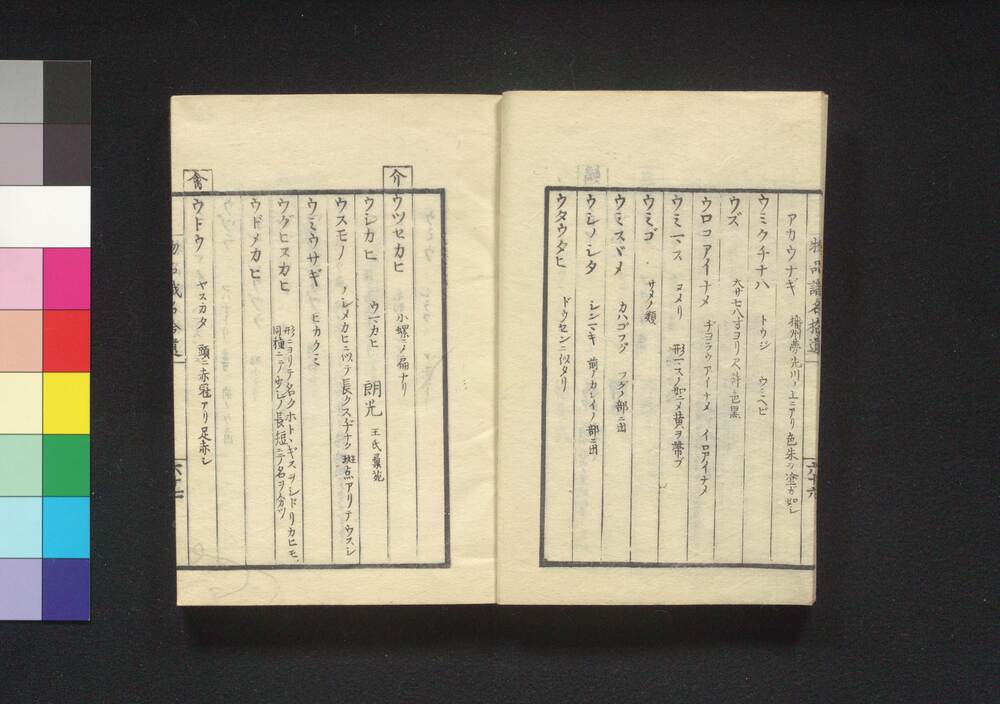 物品識名拾遺
アカウナギ 播州夢先川ノ上ニアリ色朱ヲ塗ガ如シ
ウミクチナハ トウジ ウミヘビ
ウズ 大サ七八寸ヨリ尺許色黒
ウロコアイナメ ヂヨラウアイナメ イロアイナメ
ウミマス ヨメリ 形マスノ如ニメ黄ヲ帯ブ
ウミゴ サメノ類
ウミスヾメ カハゴフグ フグノ部ニ出
ウシノシタ シンマキ 前アカレイノ部ニ出
ウタウタヒ ドウセンニ似タリ
六十六
介
ウツセカヒ 小螺ニノ扁ナリ
ウシカヒ ウマカヒ 朗光 王氏彙苑
ウスモノ ノシメカヒニ似テ長クスヂナク斑点アリテウスシ
ウミウサギ ヒカクミ
ウグヒスカヒ 形ニヨリテ名クホトヽギスヲシドリカヒモ
同種ニテウシノ長短ニテ名ヲ分ツ
ウドメカヒ
禽
ウトウ ヤスカタ 頭ニ赤冠アリ足赤シ